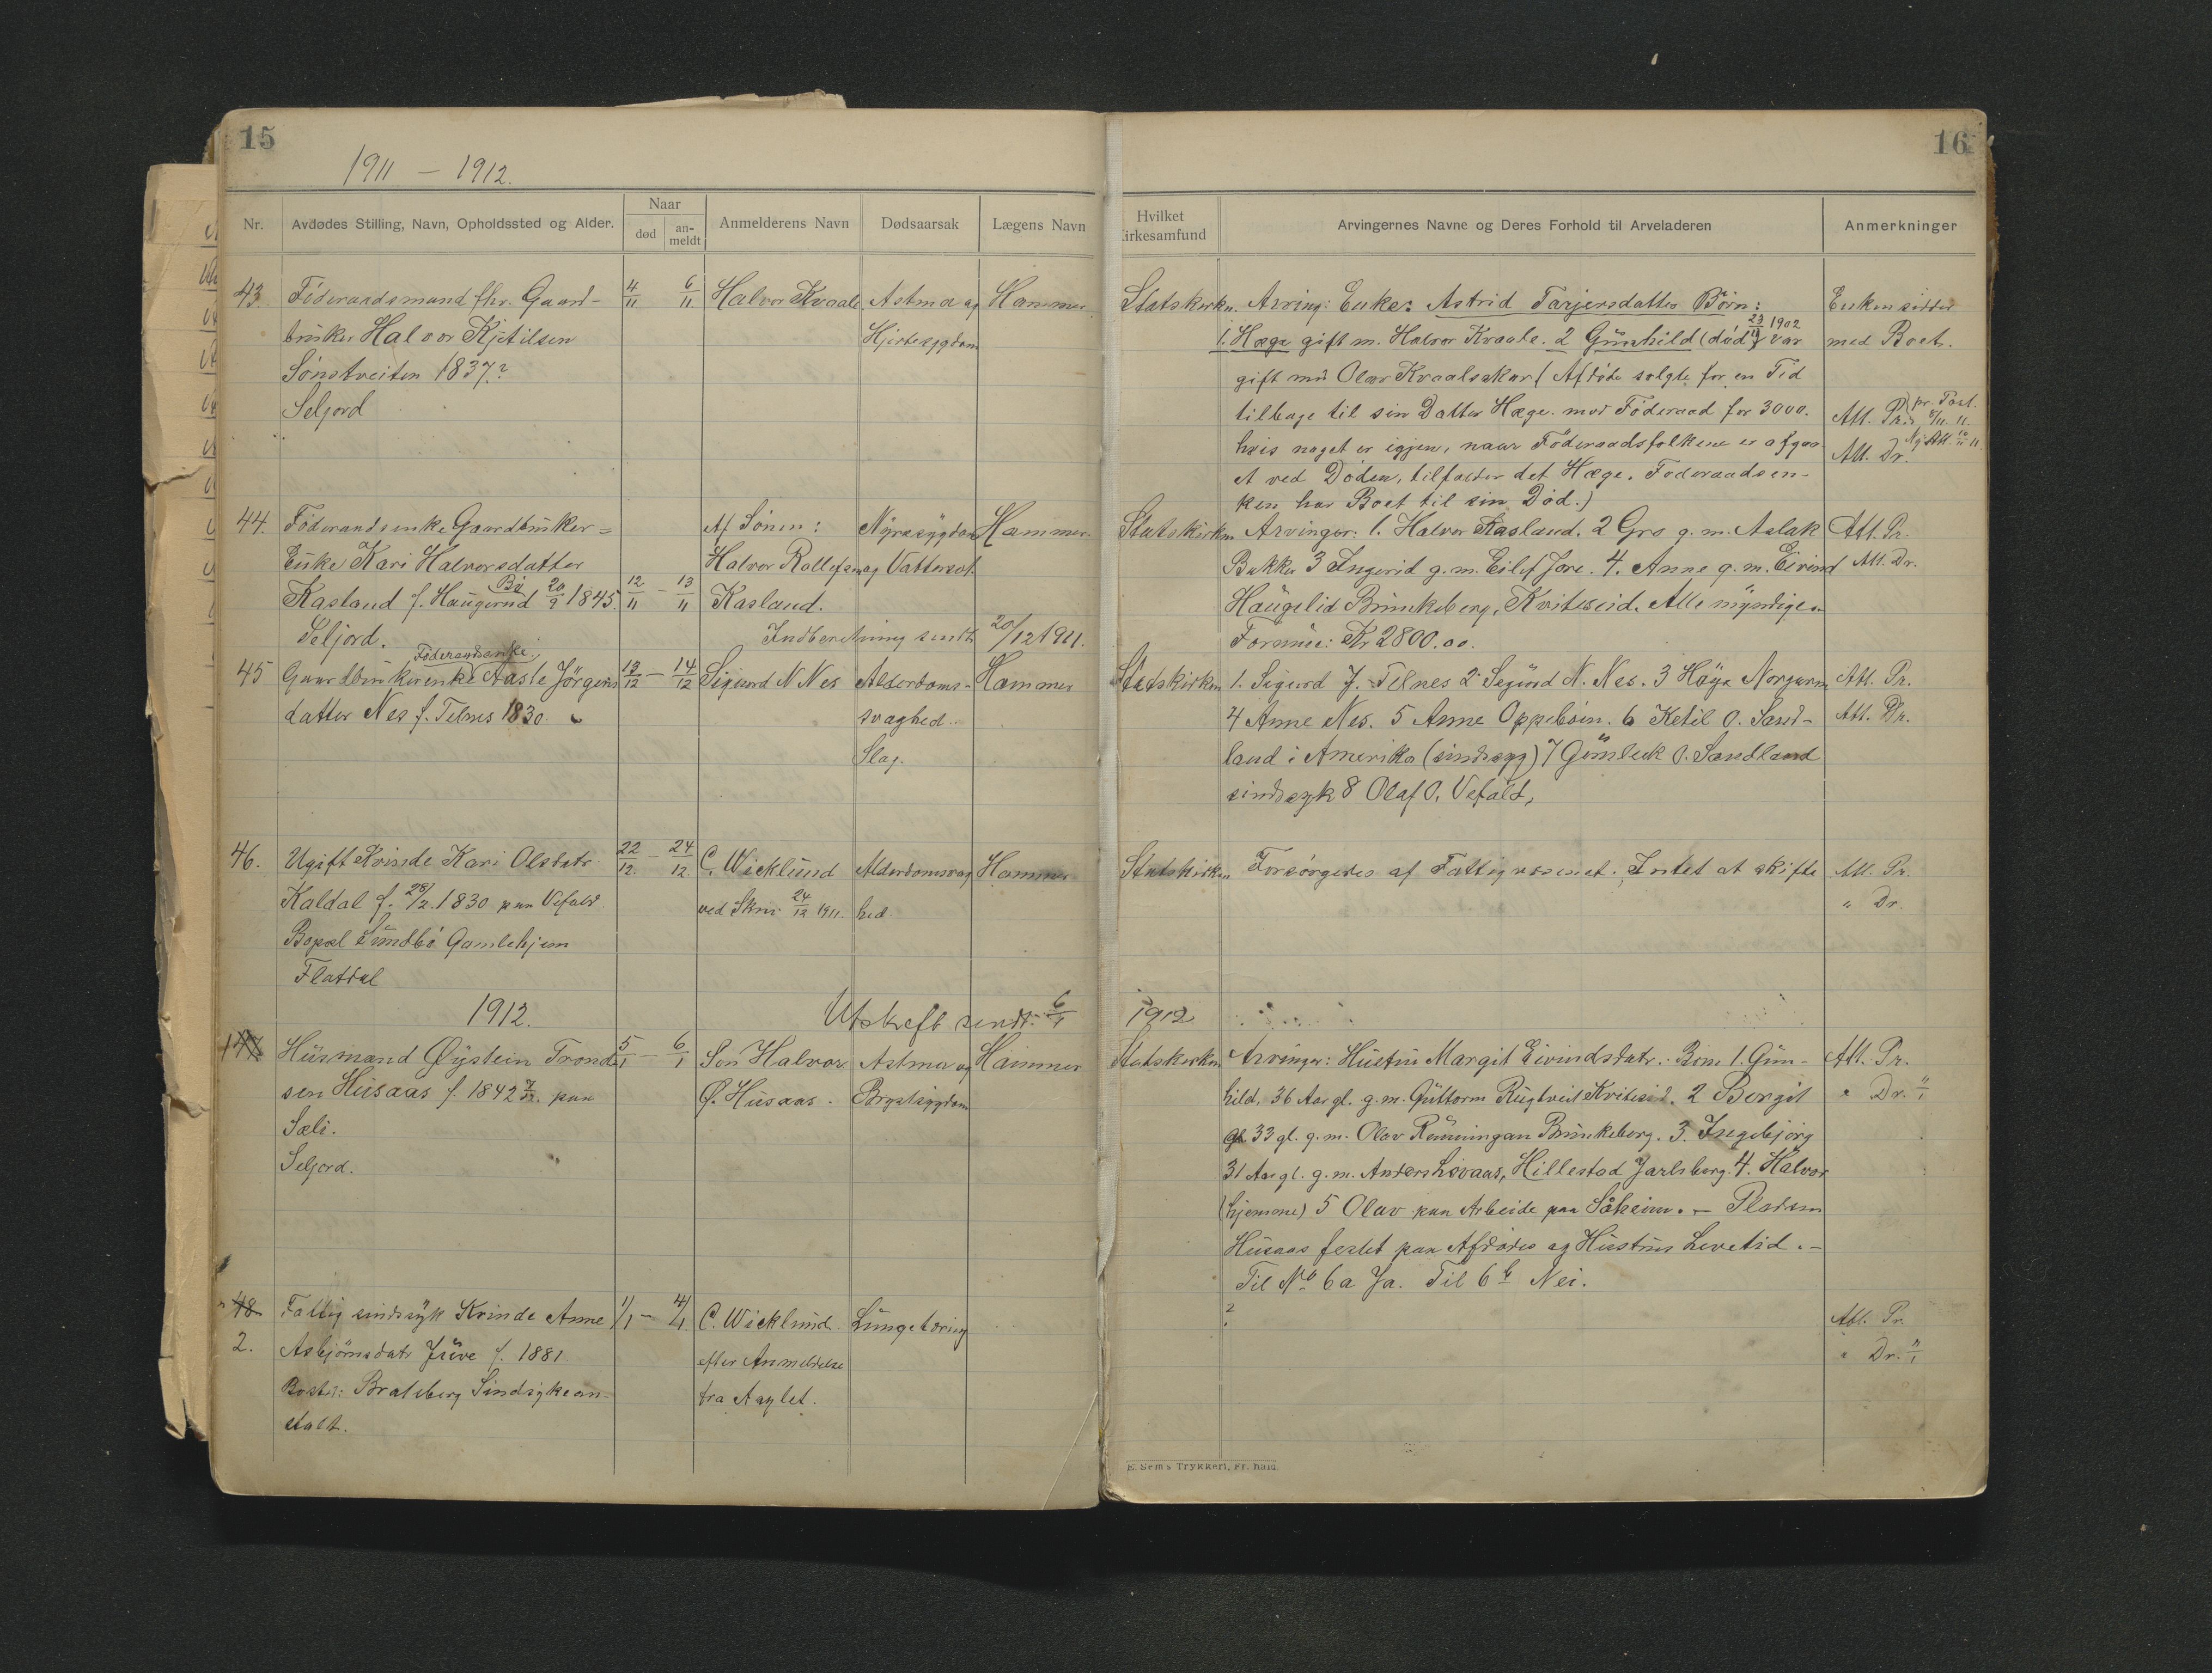 15
1911 – 1912.
Nr.
Avdødes Stilling, Navn, Opholdssted og Alder.
Naar
død
an-
meldt
Anmelderens Navn
Dødsaarsak
Lægens Navn
43.
Föderaadsmand fhv. Gaard-
bruker Halvor Kjetilsen
Sönstveiten 1837?
Seljord
4/11
6/11
Halvor Kvaale
Astma og
Hjertesygdom
Hammer
44.
Föderaadsenke Gaardbruker=
Enke Kari Halvorsdatter
Kasland f. Haugerud Bö 20/9 1845.
Seljord.
12/11 – 13/11
Af Sönen:
Halvor Rollefsen
Kasland.
Nyresygdom
og Vattersot.
Hammer
Indberetning sendt 20/12 1911.
45
Föderaadsenke
Gaardbrukerenke Aasle Jörgens
datter Nes f. Telnes 1830.
13/12 – 14/12
Sigurd N Nes
Alderdoms-
svaghed.
Slag.
Hammer
46.
Ugift Kvinde Kari Olsdatr.
Kaldal f. 28/2 1830 paa Vefald.
Bopæl Sundbö Gamlehjem
Flatdal
22/12 – 24/12
C. Wicklund
ved Skriv. 24/12 1911.
Alderdomssvag
hed
Hammer
1912.
Utskrift sendt 6/1
147.
Husmand Øystein Trond-
sen Husaas f. 1842 paa
Sæli.
Seljord.
5/1 – 6/1
Sön Halvor
Ø. Husaas.
Astma og
Brystsygdom
Hammer
48
2.
Fattig sindssyk Kvinde Anne
Asbjörnsdatr Juve f. 1881.
Bosted: Bratsberg Sindsykean-
stalt.
1/1 – 4/1
C. Wicklund
efter Anmeldelse
fra Asylet.
Lungetæring
16
Hvilket
Kirkesamfund
Arvingernes Navne og Deres Forhold til Arveladeren
Anmerkninger
Statskirken.
Arving: Enke: Astrid Tarjersdatter Börn:
1. Hæge gift m. Halvor Kvaale. 2 Gunhild (död 1902 var
gift m Olav Kvaalsakar) Afdöde solgte for en Tid
tilbage til sin Datter Hæge. mod Föderaad for 3000.
hvis noget er igjen, naar Föderaadsfolkene er afgaa-
et ved Döden, tilfalder det Hæge. Föderaadsen-
ken har Boet til sin Död.)
Enken sidder
med Boet.
Att. Pr. pr. Post. 8/11 11.
Att. Dr. Ny Att. 11
Statskirken
Arvinger: 1. Halvor Kasland. 2 Gro g.m. Aslak
Bakke 3 Ingerid g.m. Eilef Jore. 4. Anne g.m. Eivind
Haugelid Brunkeberg, Kviteseid. Alle myndige.
Formue: Kr 2800.00.
Att. Pr.
Att. Dr.
Statskirken
1. Sigurd J. Telnes 2 Sigurd N. Nes. 3 Höye Norgaren
4 Anne Nes. 5 Anne Oppeböen. 6 Ketil O. Sand-
land i Amerika (sindssyg) 7 Gunleik O. Sandland
sindssyk 8 Olaf O. Vefald,
Att. Pr.
Att. Dr.
Statskirken
Forsörgedes af Fattigvæsenet. Intet at skifte
Att. Pr.
" Dr.
1912
Statskirken
Arvinger: Hustru Margit Eivindsdatr. Börn 1. Gun-
hild, 36 Aar gl. g.m. Guttorm Rugtveit Kviteseid. 2 Bergit
33 gl. g.m. Olav Rønningan Brunkeberg. 3. Ingebjörg
31 Aar gl. g.m. Anders Lövaas, Hillestad Jarlsberg. 4. Halvor
(hjemme) 5 Olav paa Arbeide paa Såheim. – Pladsen
Husaas festet paa Afdödes og Hustrus Levetid. –
Til No 6a Ja. Til 6b Nei.
Att. Pr.
" Dr. 11/1
?
Att. Pr.
" Dr. 11/1
E. Sem's Trykkeri, Fr.hald.